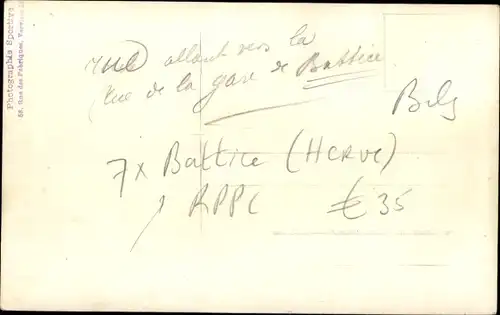 Photographie Sportive
58, Rue des Fabriques,
rue allant vers la
(Vue de la gare de Battice
Belg
7x Battice (HERVE)
RPPC € 35